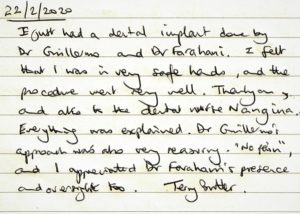 22/2/2020
I just had a dental implant done by
Dr Guillermo and Dr Farahani. I felt
that I was in very safe hands, and the
procedure went very well. Thank you,
and also to the dental nurse Nangina.
Everything was explained. Dr Guillermo's
approach was also very reassuring. "No pain",
and I appreciated Dr Farahani's presence
and oversight too. Terry